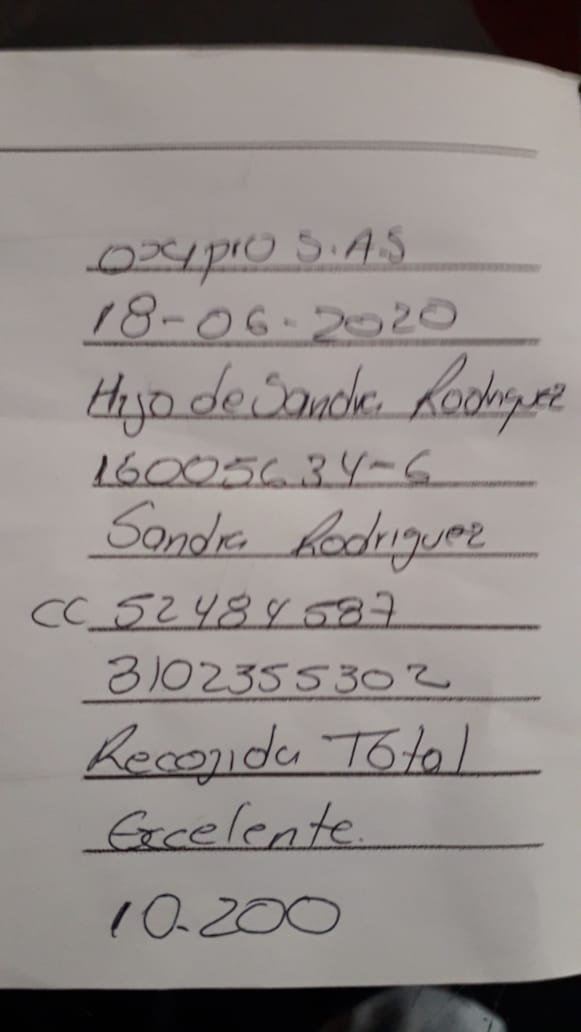 oxypro S.A.S
18-06-2020
Hijo de Sandra Rodriguez
16005634-6
Sandra Rodriguez
CC 52484587
3102355302
Recojida Total
Excelente.
10.200